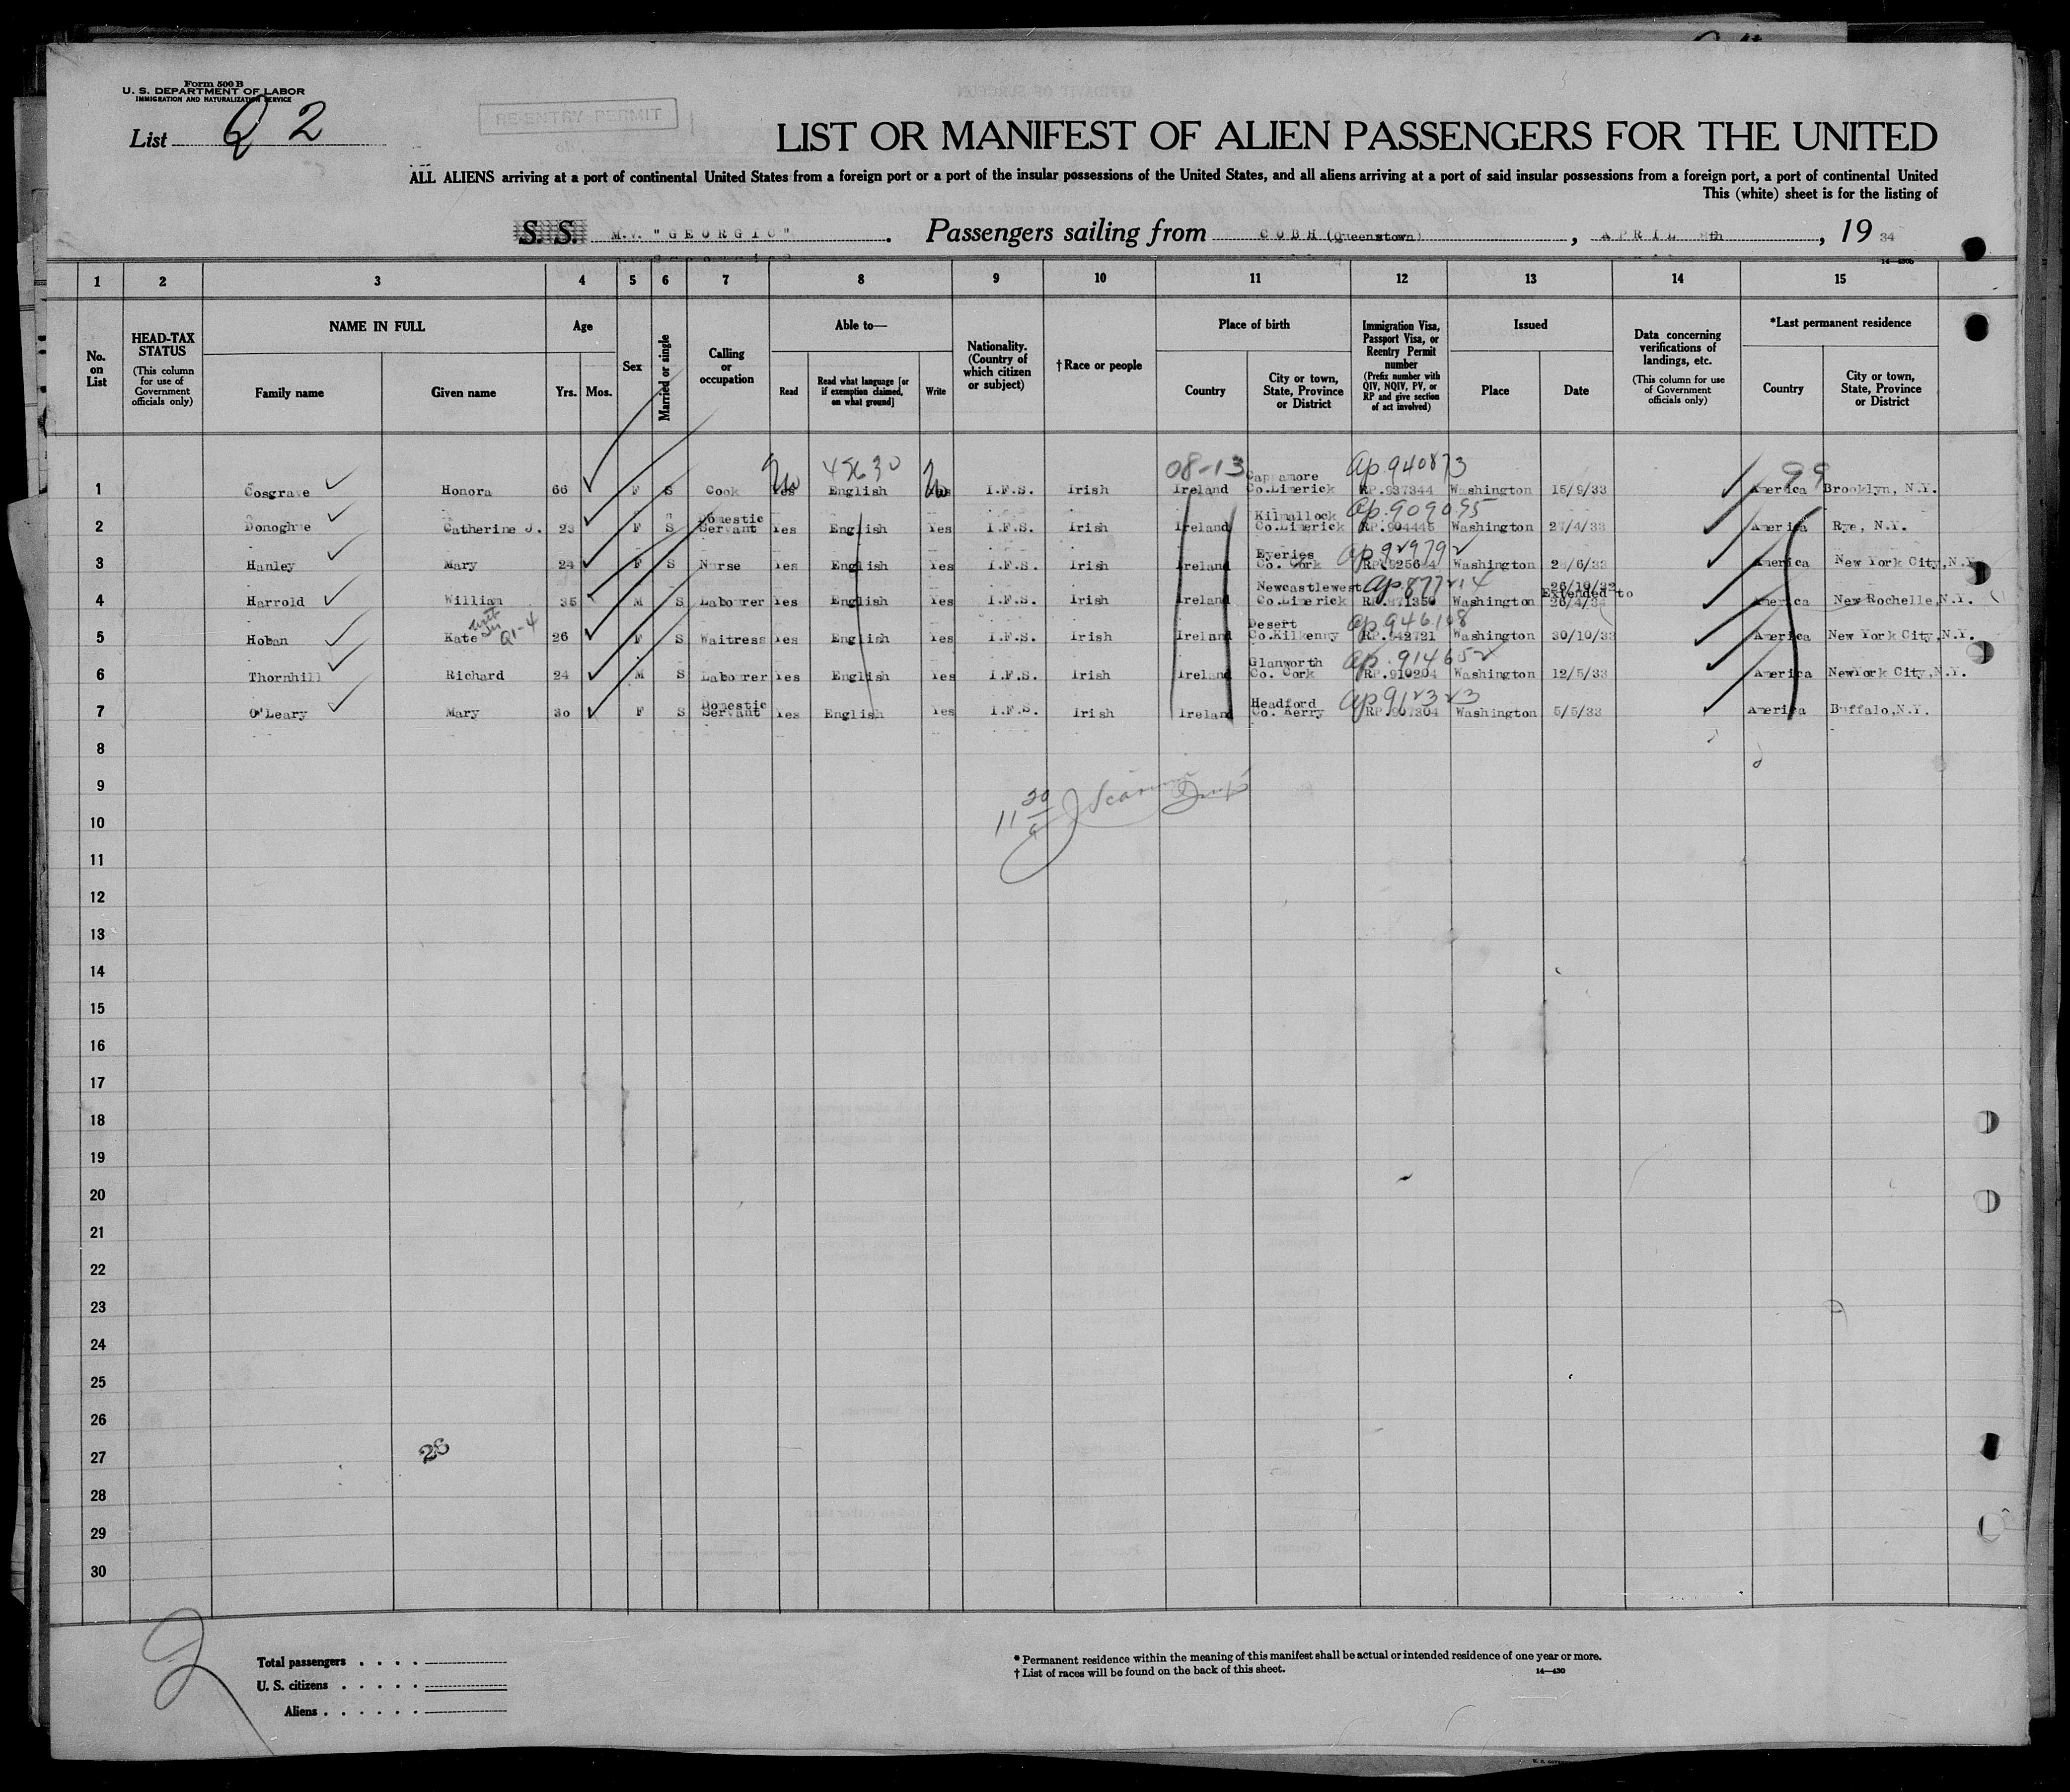 Form 500 B
U. S. DEPARTMENT OF LABOR
IMMIGRATION AND NATURALIZATION SERVICE
List Q 2
RE-ENTRY PERMIT
LIST OR MANIFEST OF ALIEN PASSENGERS FOR THE UNITED
ALL ALIENS arriving at a port of continental United States from a foreign port or a port of the insular possessions of the United States, and all aliens arriving at a port of said insular possessions from a foreign port, a port of continental United
This (white) sheet is for the listing of
S. S. M.V. "GEORGIC". Passengers sailing from COBH (Queenstown), APRIL 8th, 19 34
1 2 3 4 5 6 7 8 9 10 11 12 13 14 15
No. on List
HEAD-TAX STATUS (This column for use of Government officials only)
NAME IN FULL
Family name
Given name
Age
Yrs. Mos.
Sex
Married or single
Calling or occupation
Able to—
Read
Read what language [or if exemption claimed, on what ground]
Write
Nationality. (Country of which citizen or subject)
† Race or people
Place of birth
Country
City or town, State, Province or District
Immigration Visa, Passport Visa, or Reentry Permit number (Prefix number with QIV, NQIV, PV, or RP and give section of act involved)
Issued
Place
Date
Data concerning verifications of landings, etc. (This column for use of Government officials only)
*Last permanent residence
Country
City or town, State, Province or District
45630 08-13 Cappamore ap.940873 99
1 Cosgrave Honora 66 F S Cook Yes English Yes I.F.S. Irish Ireland Co.Limerick RP.937344 Washington 15/9/33 America Brooklyn, N.Y.
Domestic Kilmallock ap.909095
2 Donoghue Catherine J. 23 F S Servant Yes English Yes I.F.S. Irish Ireland Co.Limerick RP.904445 Washington 27/4/33 America Rye, N.Y.
Eyeries ap 929792
3 Hanley Mary 24 F S Nurse Yes English Yes I.F.S. Irish Ireland Co. Cork Washington America New York City, N.Y.
Newcastlewest ap.877214 26/10/32 Extended to
4 Harrold William 35 M S Labourer Yes English Yes I.F.S. Irish Ireland Co.Limerick Washington 26/4/34 America New Rochelle, N.Y.
Q1-4 Desert ap 946108
5 Hoban Kate 26 F S Waitress Yes English Yes I.F.S. Irish Ireland Co.Kilkenny RP.942721 Washington 30/10/33 America New York City, N.Y.
Glanworth ap.914652
6 Thornhill Richard 24 M S Labourer Yes English Yes I.F.S. Irish Ireland Co. Cork RP.910204 Washington 12/5/33 America NewYork City, N.Y.
Domestic Headford ap 912323
7 O'Leary Mary 30 F S Servant Yes English Yes I.F.S. Irish Ireland Co. Kerry RP.907304 Washington 5/5/33 America Buffalo, N.Y.
8
9
10
11
12
13
14
15
16
17
18
19
20
21
22
23
24
25
26
27
28
29
30
Total passengers
U. S. citizens
Aliens
* Permanent residence within the meaning of this manifest shall be actual or intended residence of one year or more.
† List of races will be found on the back of this sheet.
14—430